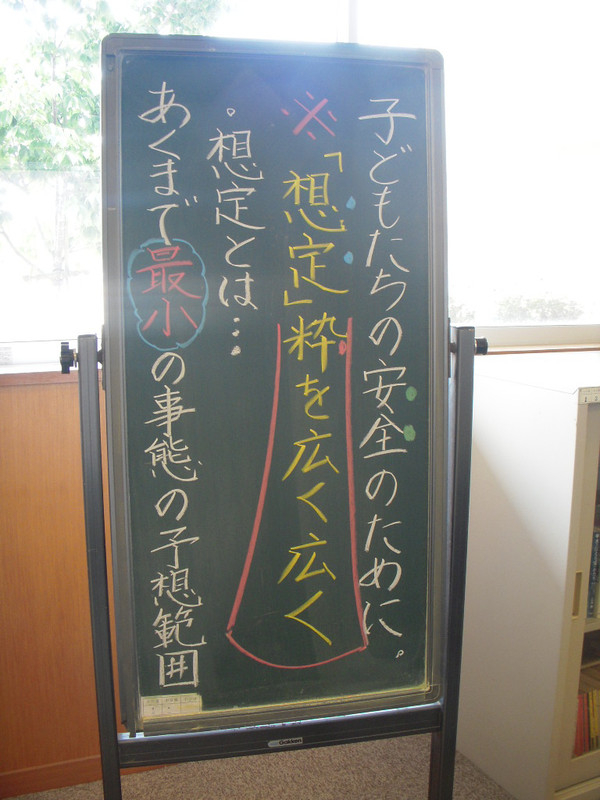 子どもたちの安全のために。
※「想定」粋を広く広く
・想定とは…
あくまで最小の事態の予想範囲
Gakken